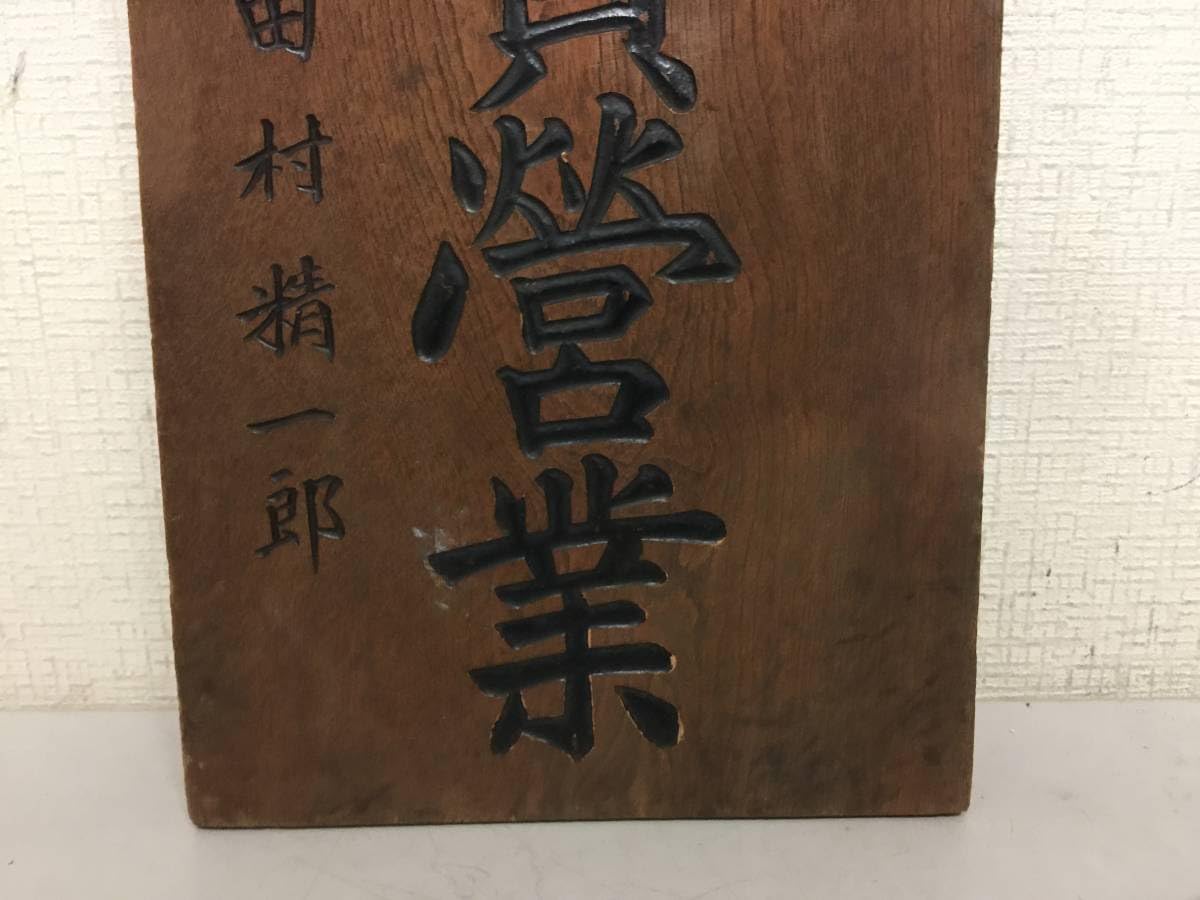 營業
田村精一郎